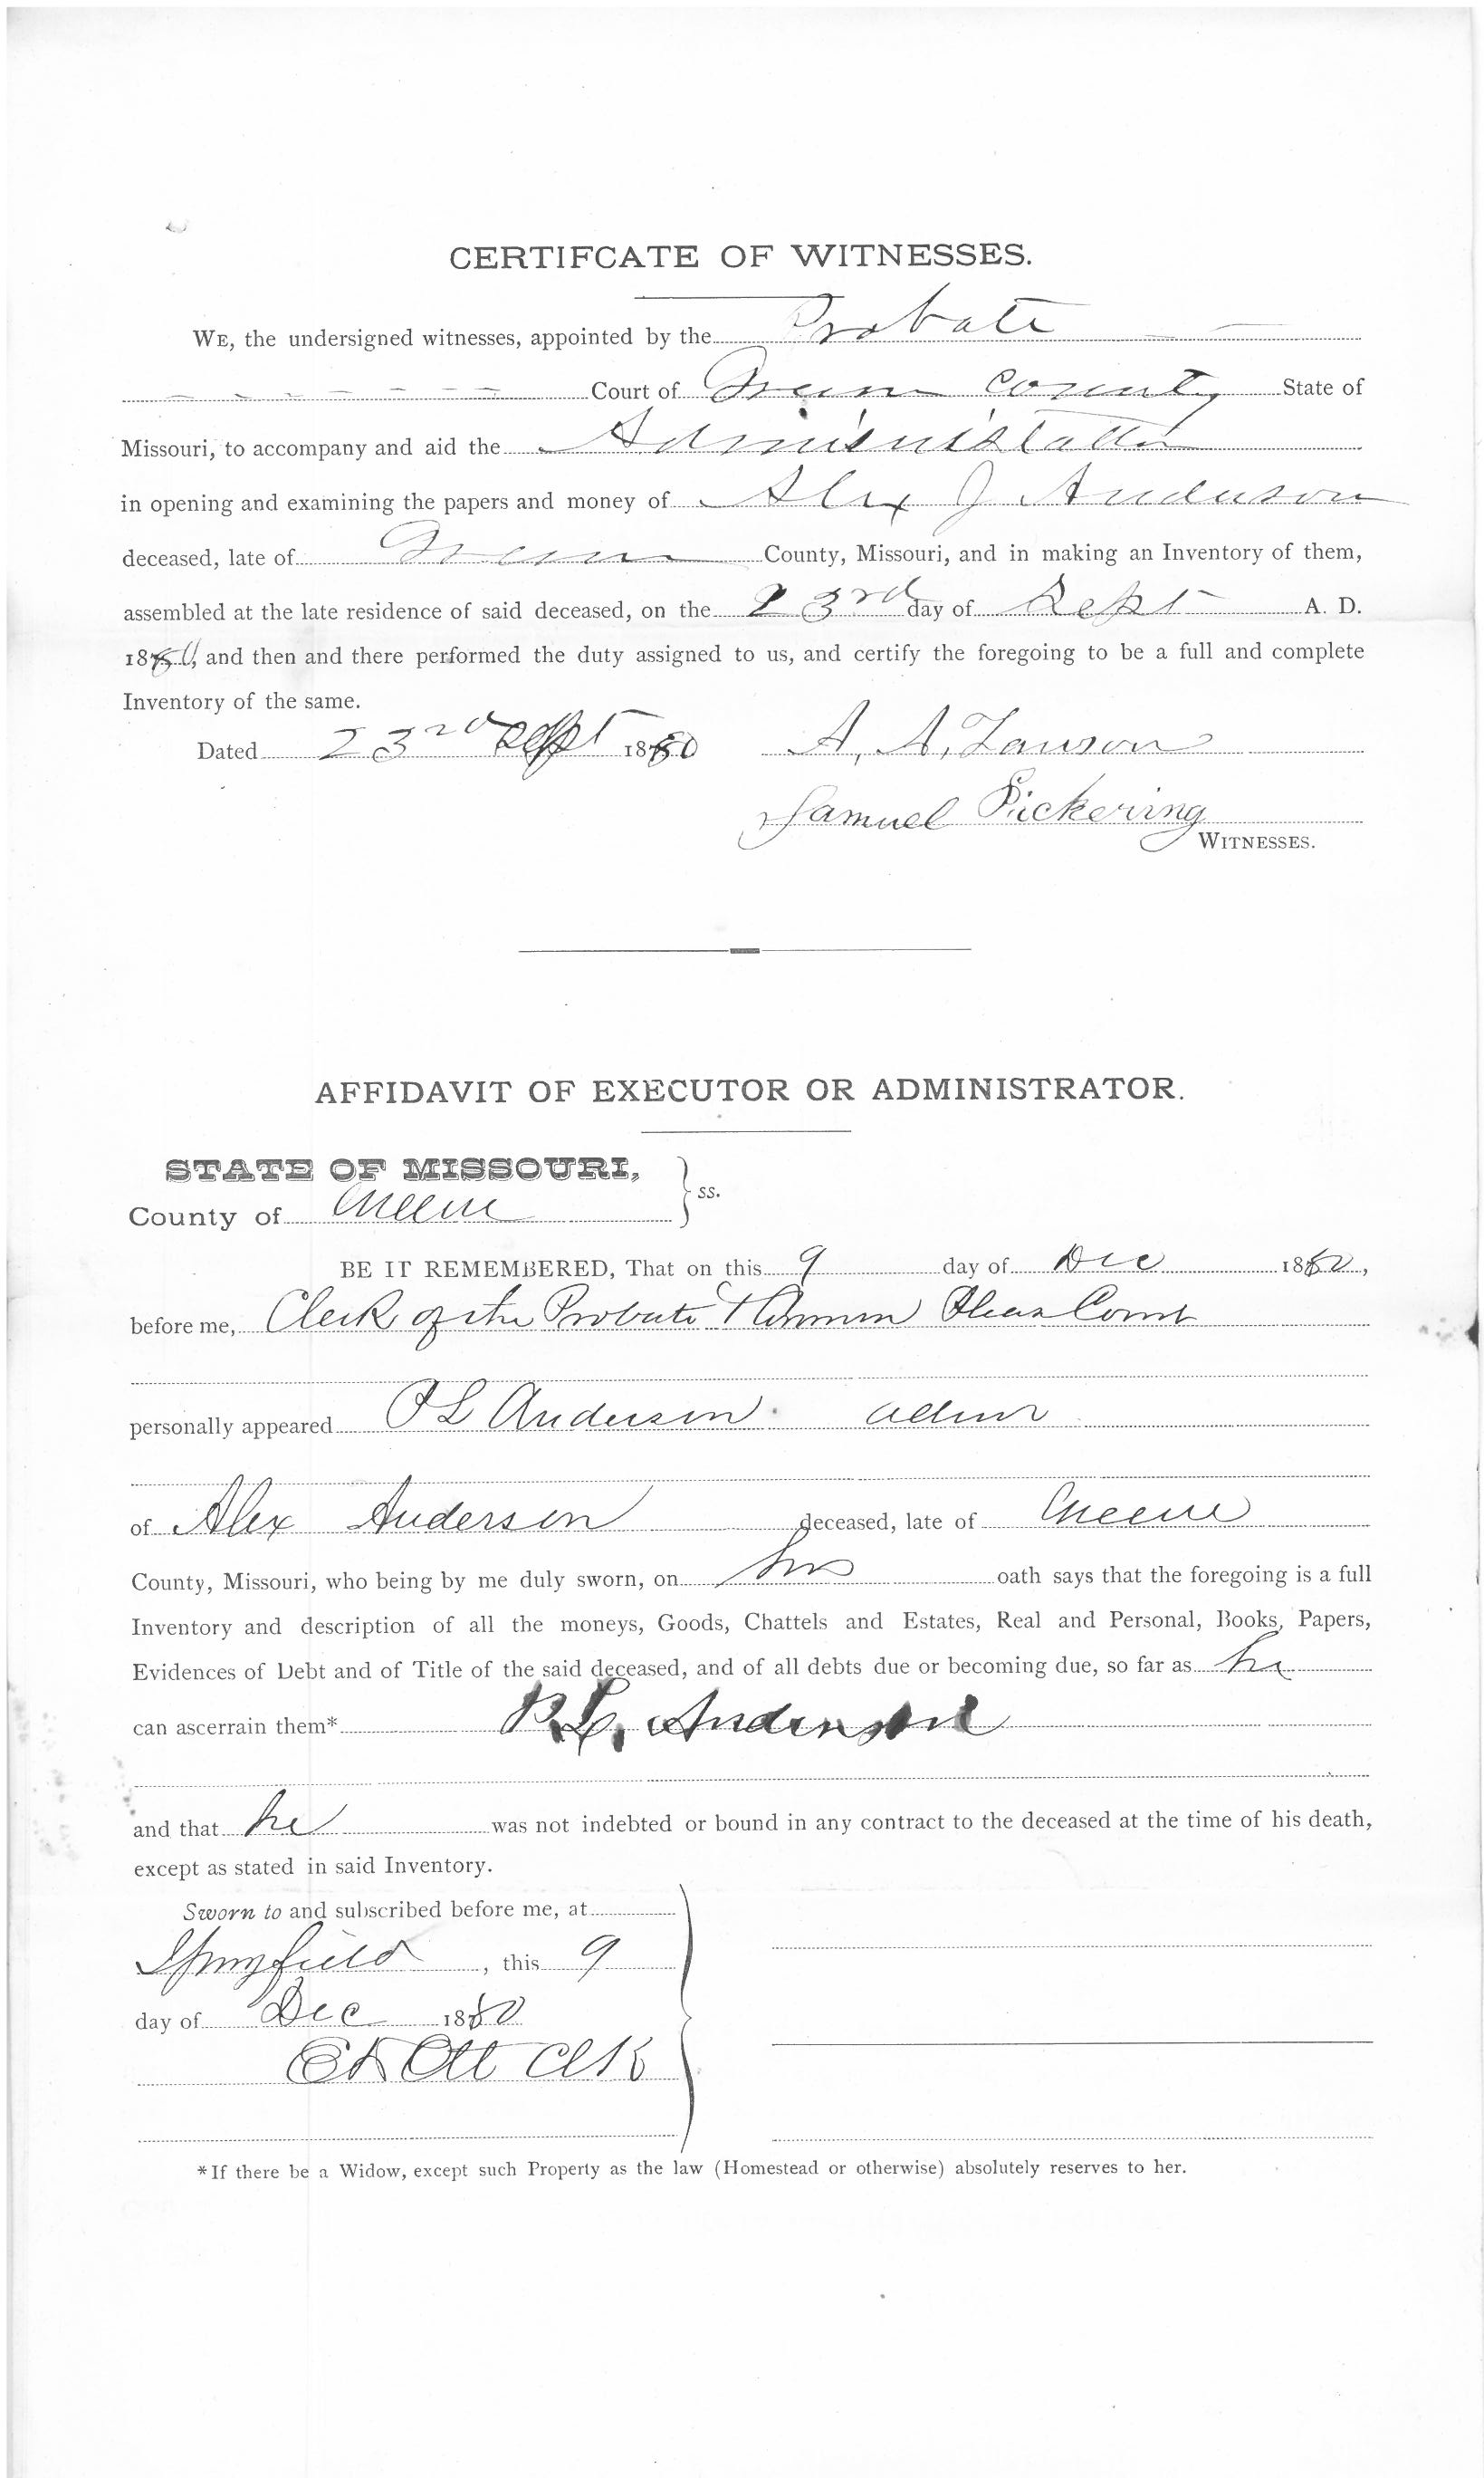 CERTIFCATE OF WITNESSES.
WE, the undersigned witnesses, appointed by the Probate
Court of Green County State of
Missouri, to accompany and aid the Administator
in opening and examining the papers and money of Alex J Anderson
deceased, late of Green County, Missouri, and in making an Inventory of them,
assembled at the late residence of said deceased, on the 23rd day of Sept A. D.
1880, and then and there performed the duty assigned to us, and certify the foregoing to be a full and complete
Inventory of the same.
Dated 23rd Sept 1880 A. A. Lawson
Samuel Pickering
WITNESSES.
AFFIDAVIT OF EXECUTOR OR ADMINISTRATOR.
STATE OF MISSOURI,
County of Greene ss.
BE IT REMEMBERED, That on this 9 day of Dec 1880,
before me, Clerk of the Probate & Common Pleas Court
personally appeared P L Anderson admr
of Alex Anderson deceased, late of Greene
County, Missouri, who being by me duly sworn, on his oath says that the foregoing is a full
Inventory and description of all the moneys, Goods, Chattels and Estates, Real and Personal, Books, Papers,
Evidences of Debt and of Title of the said deceased, and of all debts due or becoming due, so far as he
can ascerrain them* P. L. Anderson
and that he was not indebted or bound in any contract to the deceased at the time of his death,
except as stated in said Inventory.
Sworn to and subscribed before me, at
Springfield, this 9
day of Dec 1880
Ott Clk
*If there be a Widow, except such Property as the law (Homestead or otherwise) absolutely reserves to her.